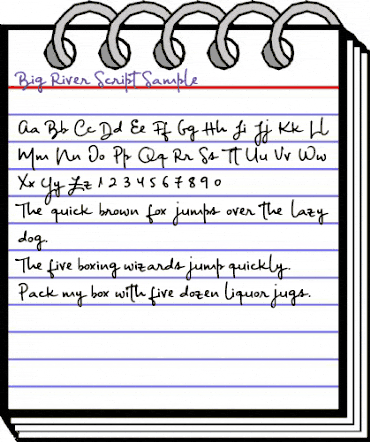 Big River Script Sample
Aa Bb Cc Dd Ee Ff Gg Hh Ii Jj Kk Ll
Mm Nn Oo Pp Qq Rr Ss Tt Uu Vv Ww
Xx Yy Zz 1 2 3 4 5 6 7 8 9 0
The quick brown fox jumps over the lazy
dog.
The five boxing wizards jump quickly.
Pack my box with five dozen liquor jugs.